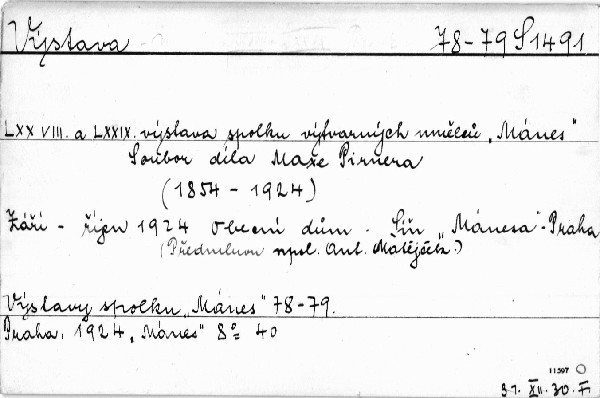 Výstava 78-79 S 1491
LXXVIII. a LXXIX. výstava spolku výtvarných umělců „Mánes"
Soubor díla Maxe Pirnera
(1854 - 1924)
Září - říjen 1924 Obecní dům - Síň „Mánesa" - Praha
(Předmluvou opl. Ant. Matějček.)
Výstavy spolku „Mánes" 78-79.
Praha, 1924, „Mánes" 8° 40
11597
31. XII. 30. F.